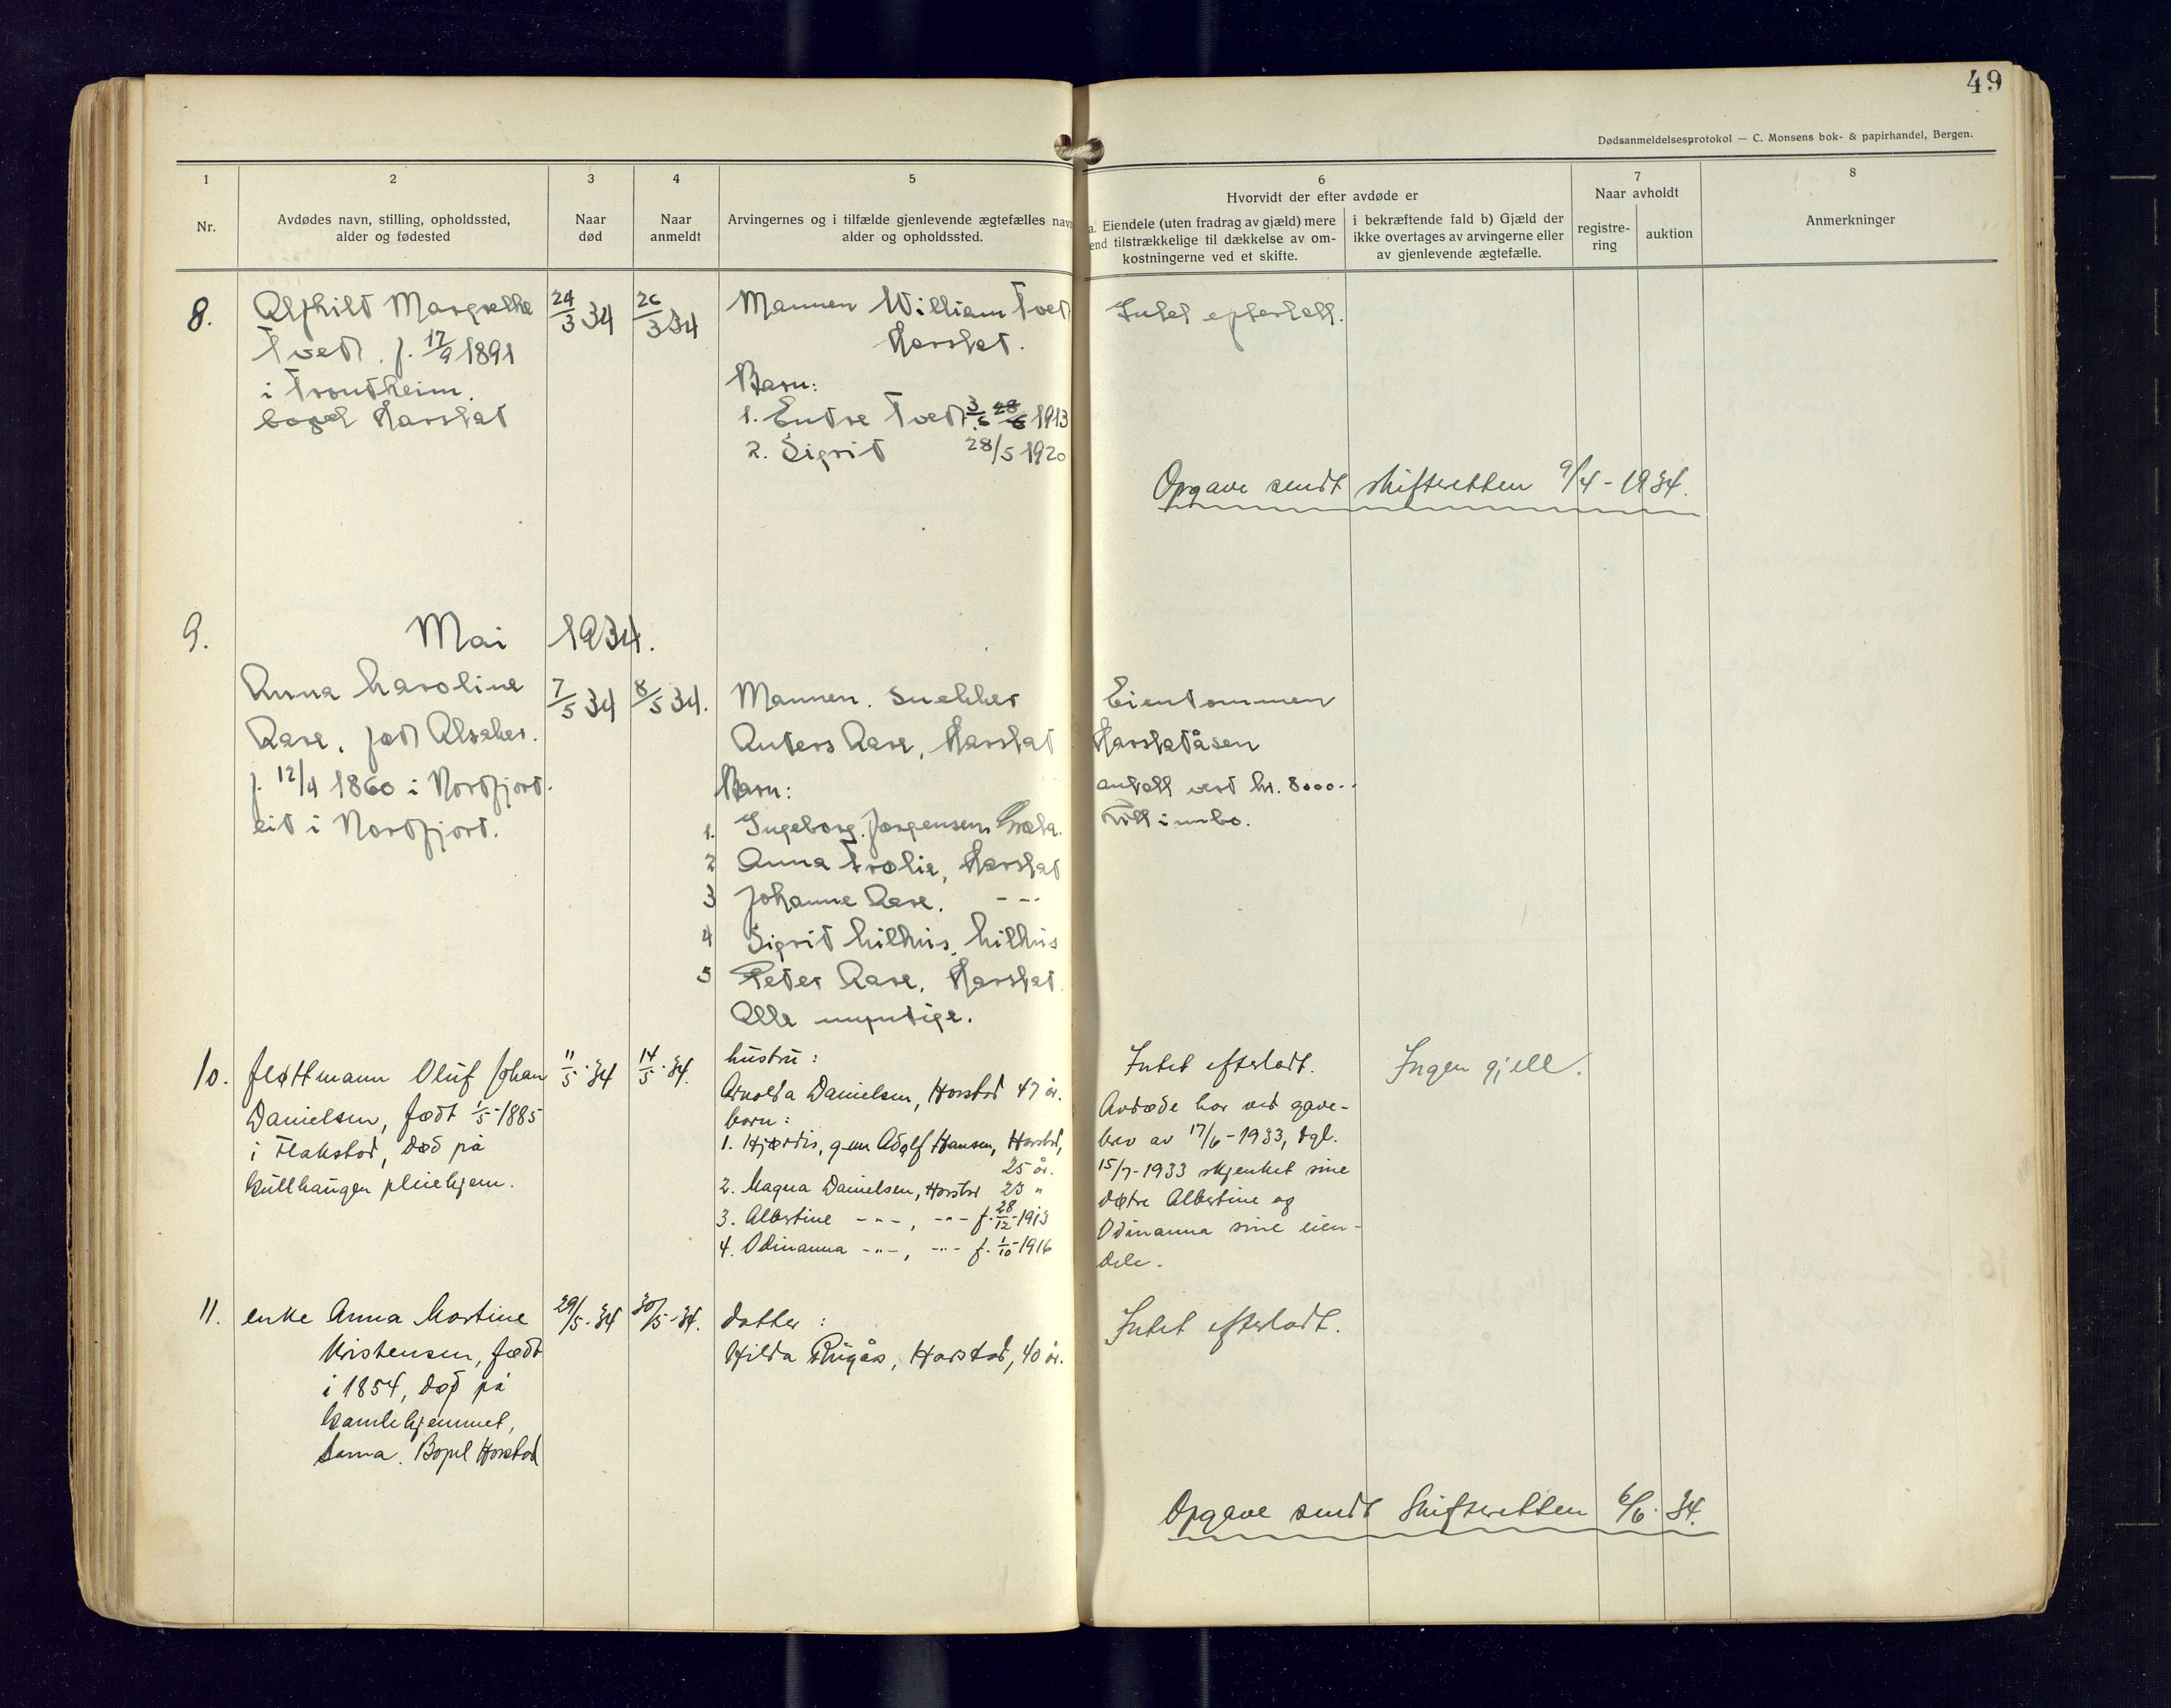 49
Dødsanmeldelsesprotokol — C. Monsens bok- & papirhandel, Bergen.
1
Nr.
2
Avdødes navn, stilling, opholdssted,
alder og fødested
3
Naar
død
4
Naar
anmeldt
5
Arvingernes og i tilfælde gjenlevende ægtefælles navn
alder og opholdssted.
6
Hvorvidt der efter avdøde er
a. Eiendele (uten fradrag av gjæld) mere
end tilstrækkelige til dækkelse av om-
kostningerne ved et skifte.
i bekræftende fald b) Gjæld der
ikke overtages av arvingerne eller
av gjenlevende ægtefælle.
7
Naar avholdt
registre-
ring
auktion
8
Anmerkninger
8.
Alfhild Margrethe
Tvedt. f. 17/9 1891
i Trondheim.
bopel Harstad
24/3 34
26/3 34
Mannen William Tvedt
Harstad.
Barn:
1. Endre Tvedt 3/6 28/6 1913
2. Sigrid 28/5 1920
Intet efterlatt.
Opgave sendt skifteretten 9/4 - 1934.
9.
Mai 1934.
Anna Karoline
Aase, født Alsaker.
f. 12/4 1860 i Nordfjord-
eid i Nordfjord.
7/5 34
8/5 34.
Mannen. Snekker
Anders Aase, Harstad
Barn:
1. Ingeborg Jørgensen
2 Anna Frølie, Harstad
3 Johanne Aase. - - -
4 Sigrid Kilhus, Kilhus
5 Peter Aase, Harstad.
Alle myndige.
Eiendommen
Harstadåsen
antatt verd kr. 8000..
innbo.
10.
fløttmann Oluf Johan
Danielsen, født 1/5-1885
i Flakstad, død på
Gullhaugen pleiehjem.
11/5.34
14/5.34.
hustru:
Arnolda Danielsen, Harstad 47 år.
born:
1. Hjørdis, gm Adolf Hansen, Harstad,
25 år.
2. Magna Danielsen, Harstad 23 "
3. Albertine -"-, -"- f. 28/12-1913
4. Odinanna -"-, -"- f. 1/10-1916
Intet efterladt.
Avdøde har ved gave-
brev av 17/6-1933, dgl.
15/7-1933 skjenket sine
døtre Albertine og
Odinanna sine eien-
dele.
Ingen gjeld.
11.
enke Anna Martine
Kristensen, født
i 1854, død på
Gamlehjemmet,
Sama. Bopel Harstad
29/5.34
30/5.34.
datter:
Hilda Rugås, Harstad, 40 år.
Intet efterladt.
Opgave sendt Skifteretten 6/6. 34.